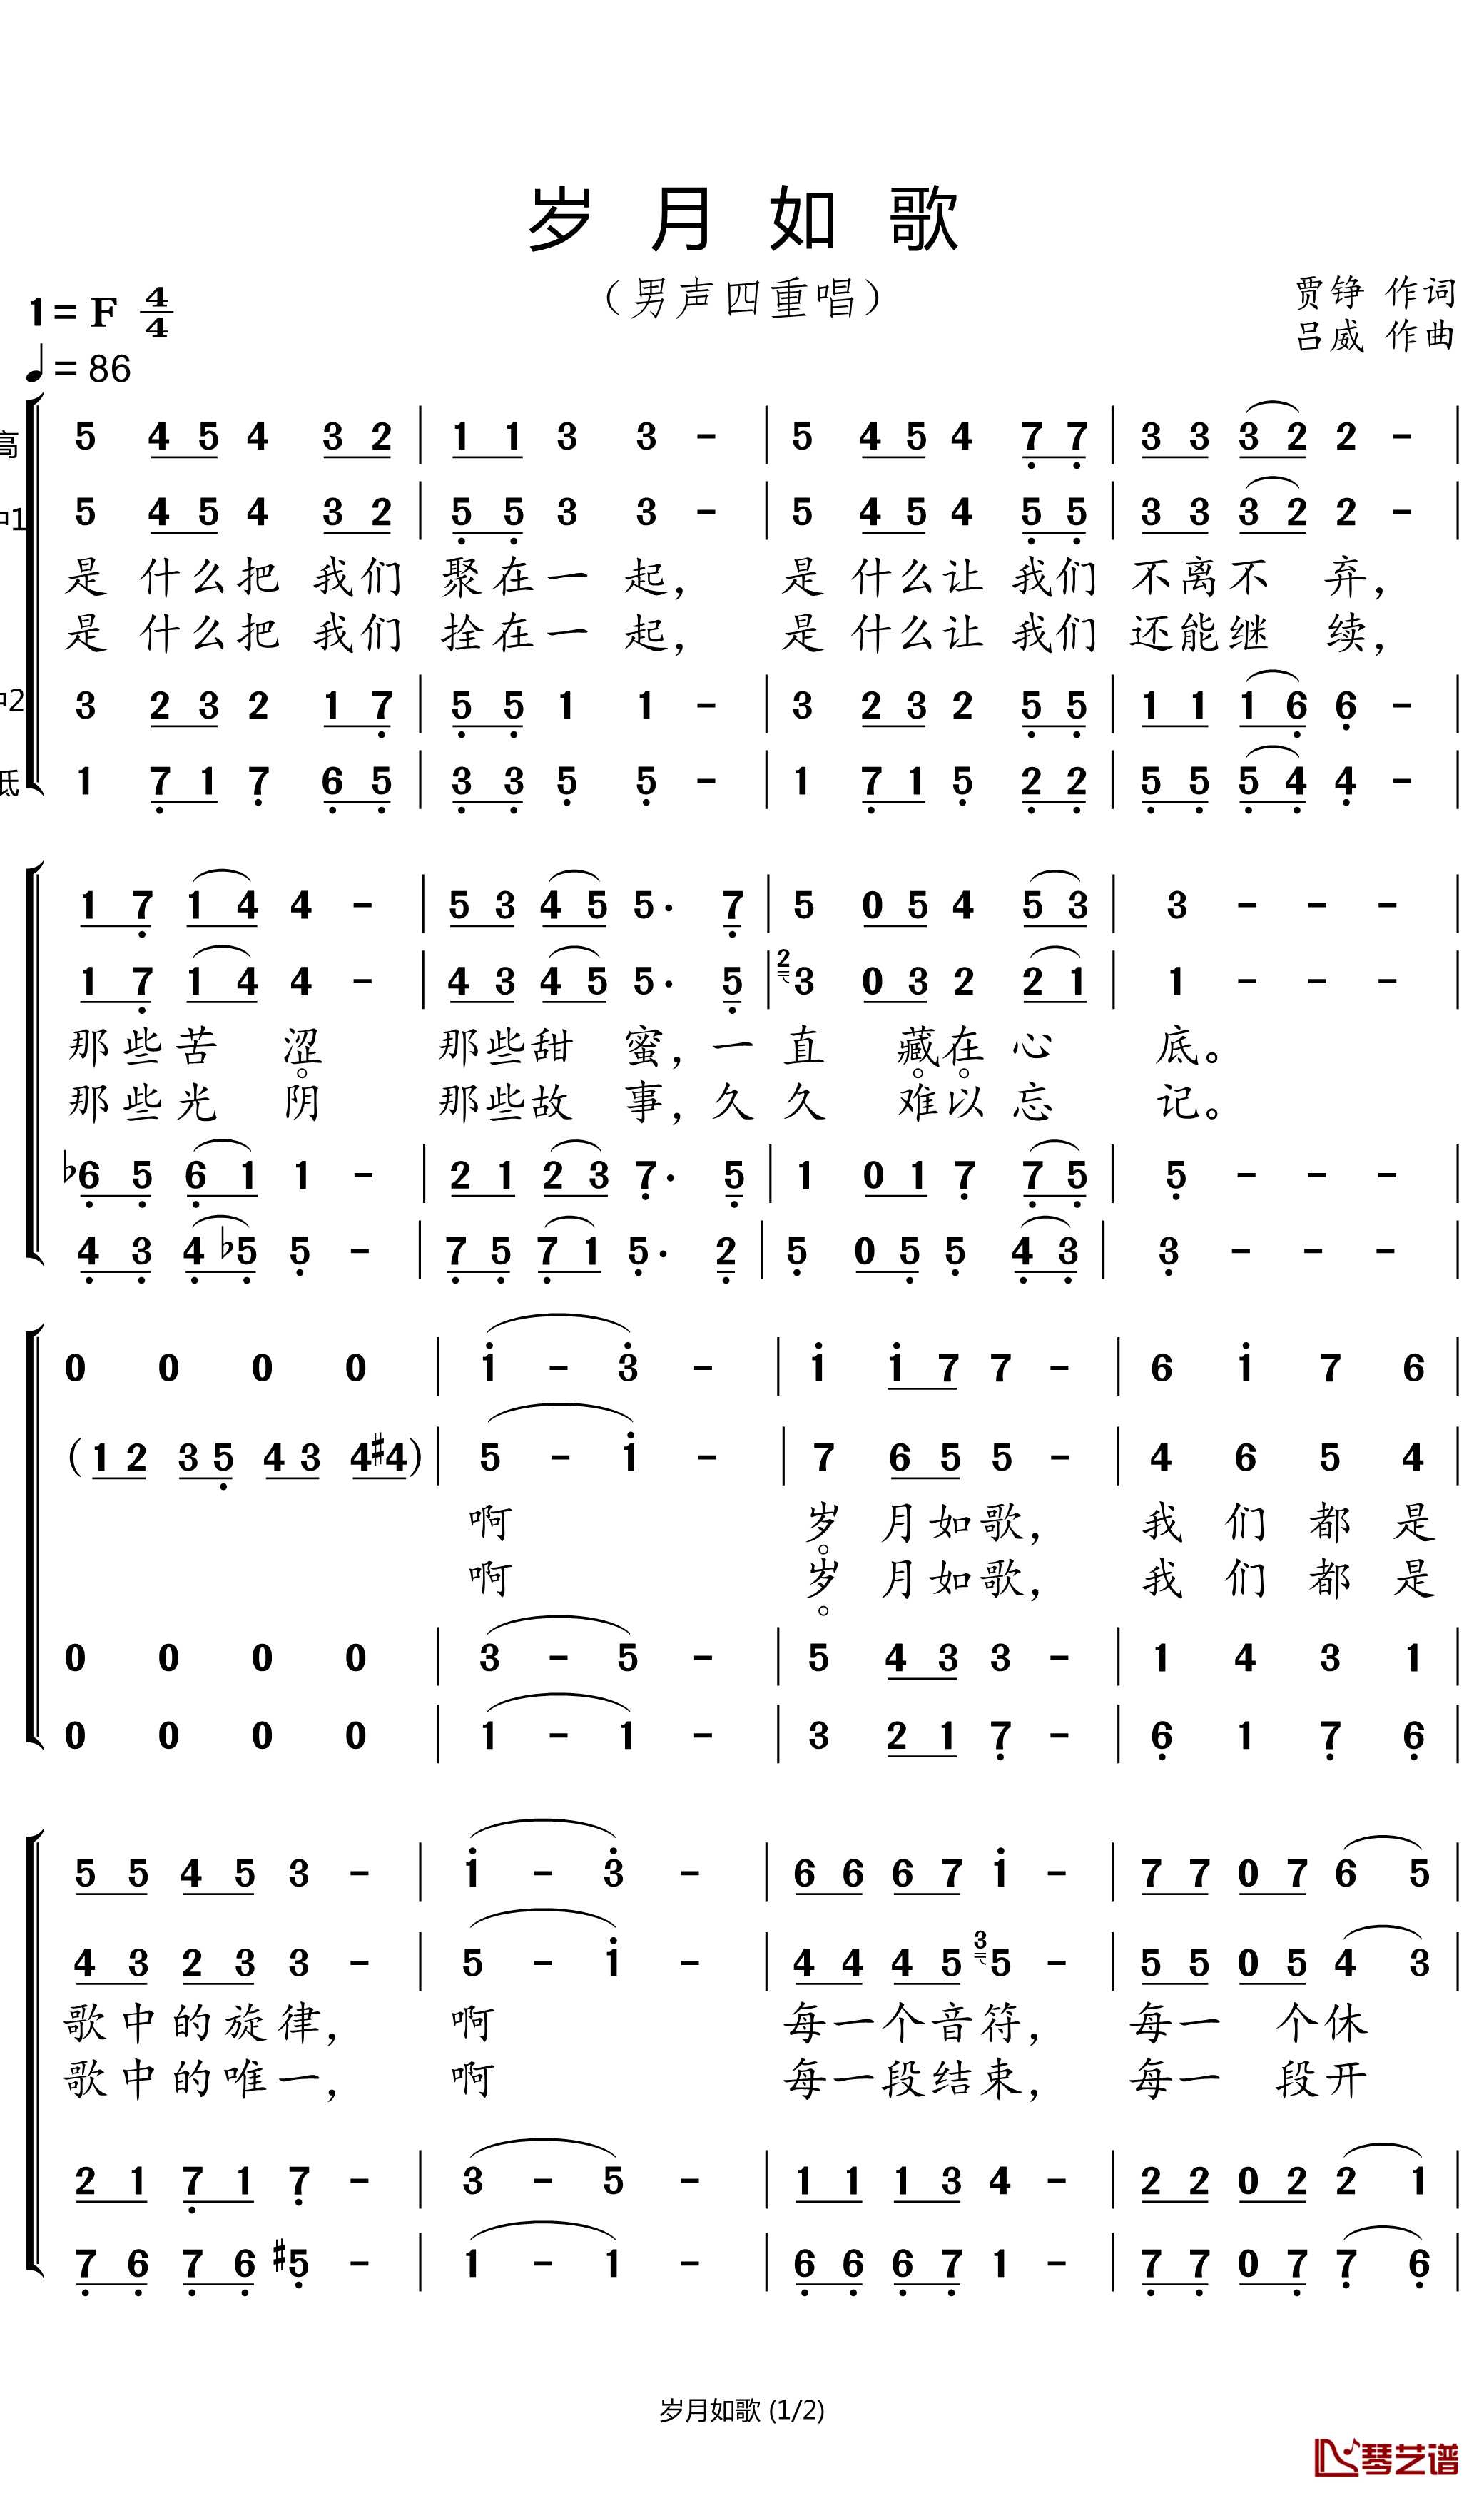 岁 月 如 歌
（男声四重唱）
贾铮 作词
吕威 作曲
1=F 4/4
♩=86
高 5 4 5 4 3 2 | 1 1 3 3 - | 5 4 5 4 7 7 | 3 3 3 2 2 -
1 5 4 5 4 3 2 | 5 5 3 3 - | 5 4 5 4 5 5 | 3 3 3 2 2 -
是 什么把 我们 聚在一 起， 是 什么让 我们 不离不 弃，
是 什么把 我们 拴在一 起， 是 什么让 我们 还能继 续，
2 3 2 3 2 1 7 | 5 5 1 1 - | 3 2 3 2 5 5 | 1 1 1 6 6 -
1 7 1 7 6 5 | 3 3 5 5 - | 1 7 1 5 2 2 | 5 5 5 4 4 -
1 7 1 4 4 - | 5 3 4 5 5· 7 | 5 0 5 4 5 3 | 3 - - -
1 7 1 4 4 - | 4 3 4 5 5· 5 | 2 3 0 3 2 2 1 | 1 - - -
那些苦 涩 那些甜 蜜，一 直 藏在 心 底。
那些光 阴 那些故 事，久 久 难以 忘 记。
♭6 5 6 1 1 - | 2 1 2 3 7· 5 | 1 0 1 7 7 5 | 5 - - -
4 3 4 ♭5 5 - | 7 5 7 1 5· 2 | 5 0 5 5 4 3 | 3 - - -
0 0 0 0 | 1 - 3 - | 1 1 7 7 - | 6 1 7 6
(1 2 3 5 4 3 4 #4) | 5 - 1 - | 7 6 5 5 - | 4 6 5 4
啊 岁 月如歌， 我 们 都 是
啊 岁 月如歌， 我 们 都 是
0 0 0 0 | 3 - 5 - | 5 4 3 3 - | 1 4 3 1
0 0 0 0 | 1 - 1 - | 3 2 1 7 - | 6 1 7 6
5 5 4 5 3 - | 1 - 3 - | 6 6 6 7 1 - | 7 7 0 7 6 5
4 3 2 3 3 - | 5 - 1 - | 4 4 4 5 3 5 - | 5 5 0 5 4 3
歌中的旋律， 啊 每一个音符， 每一 个休
歌中的唯一， 啊 每一段结束， 每一 段开
2 1 7 1 7 - | 3 - 5 - | 1 1 1 3 4 - | 2 2 0 2 2 1
7 6 7 6 #5 - | 1 - 1 - | 6 6 6 7 1 - | 7 7 0 7 7 6
岁月如歌 (1/2)
琴艺谱